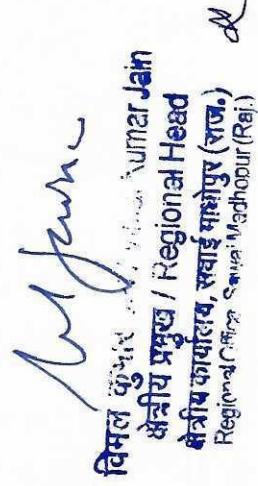 विमल कुमार Kumar Jain
क्षेत्रीय प्रमुख / Regional Head
क्षेत्रीय कार्यालय, सवाई माधोपुर (राज.)
Regional Office, Sawai Madhopur (Raj.)